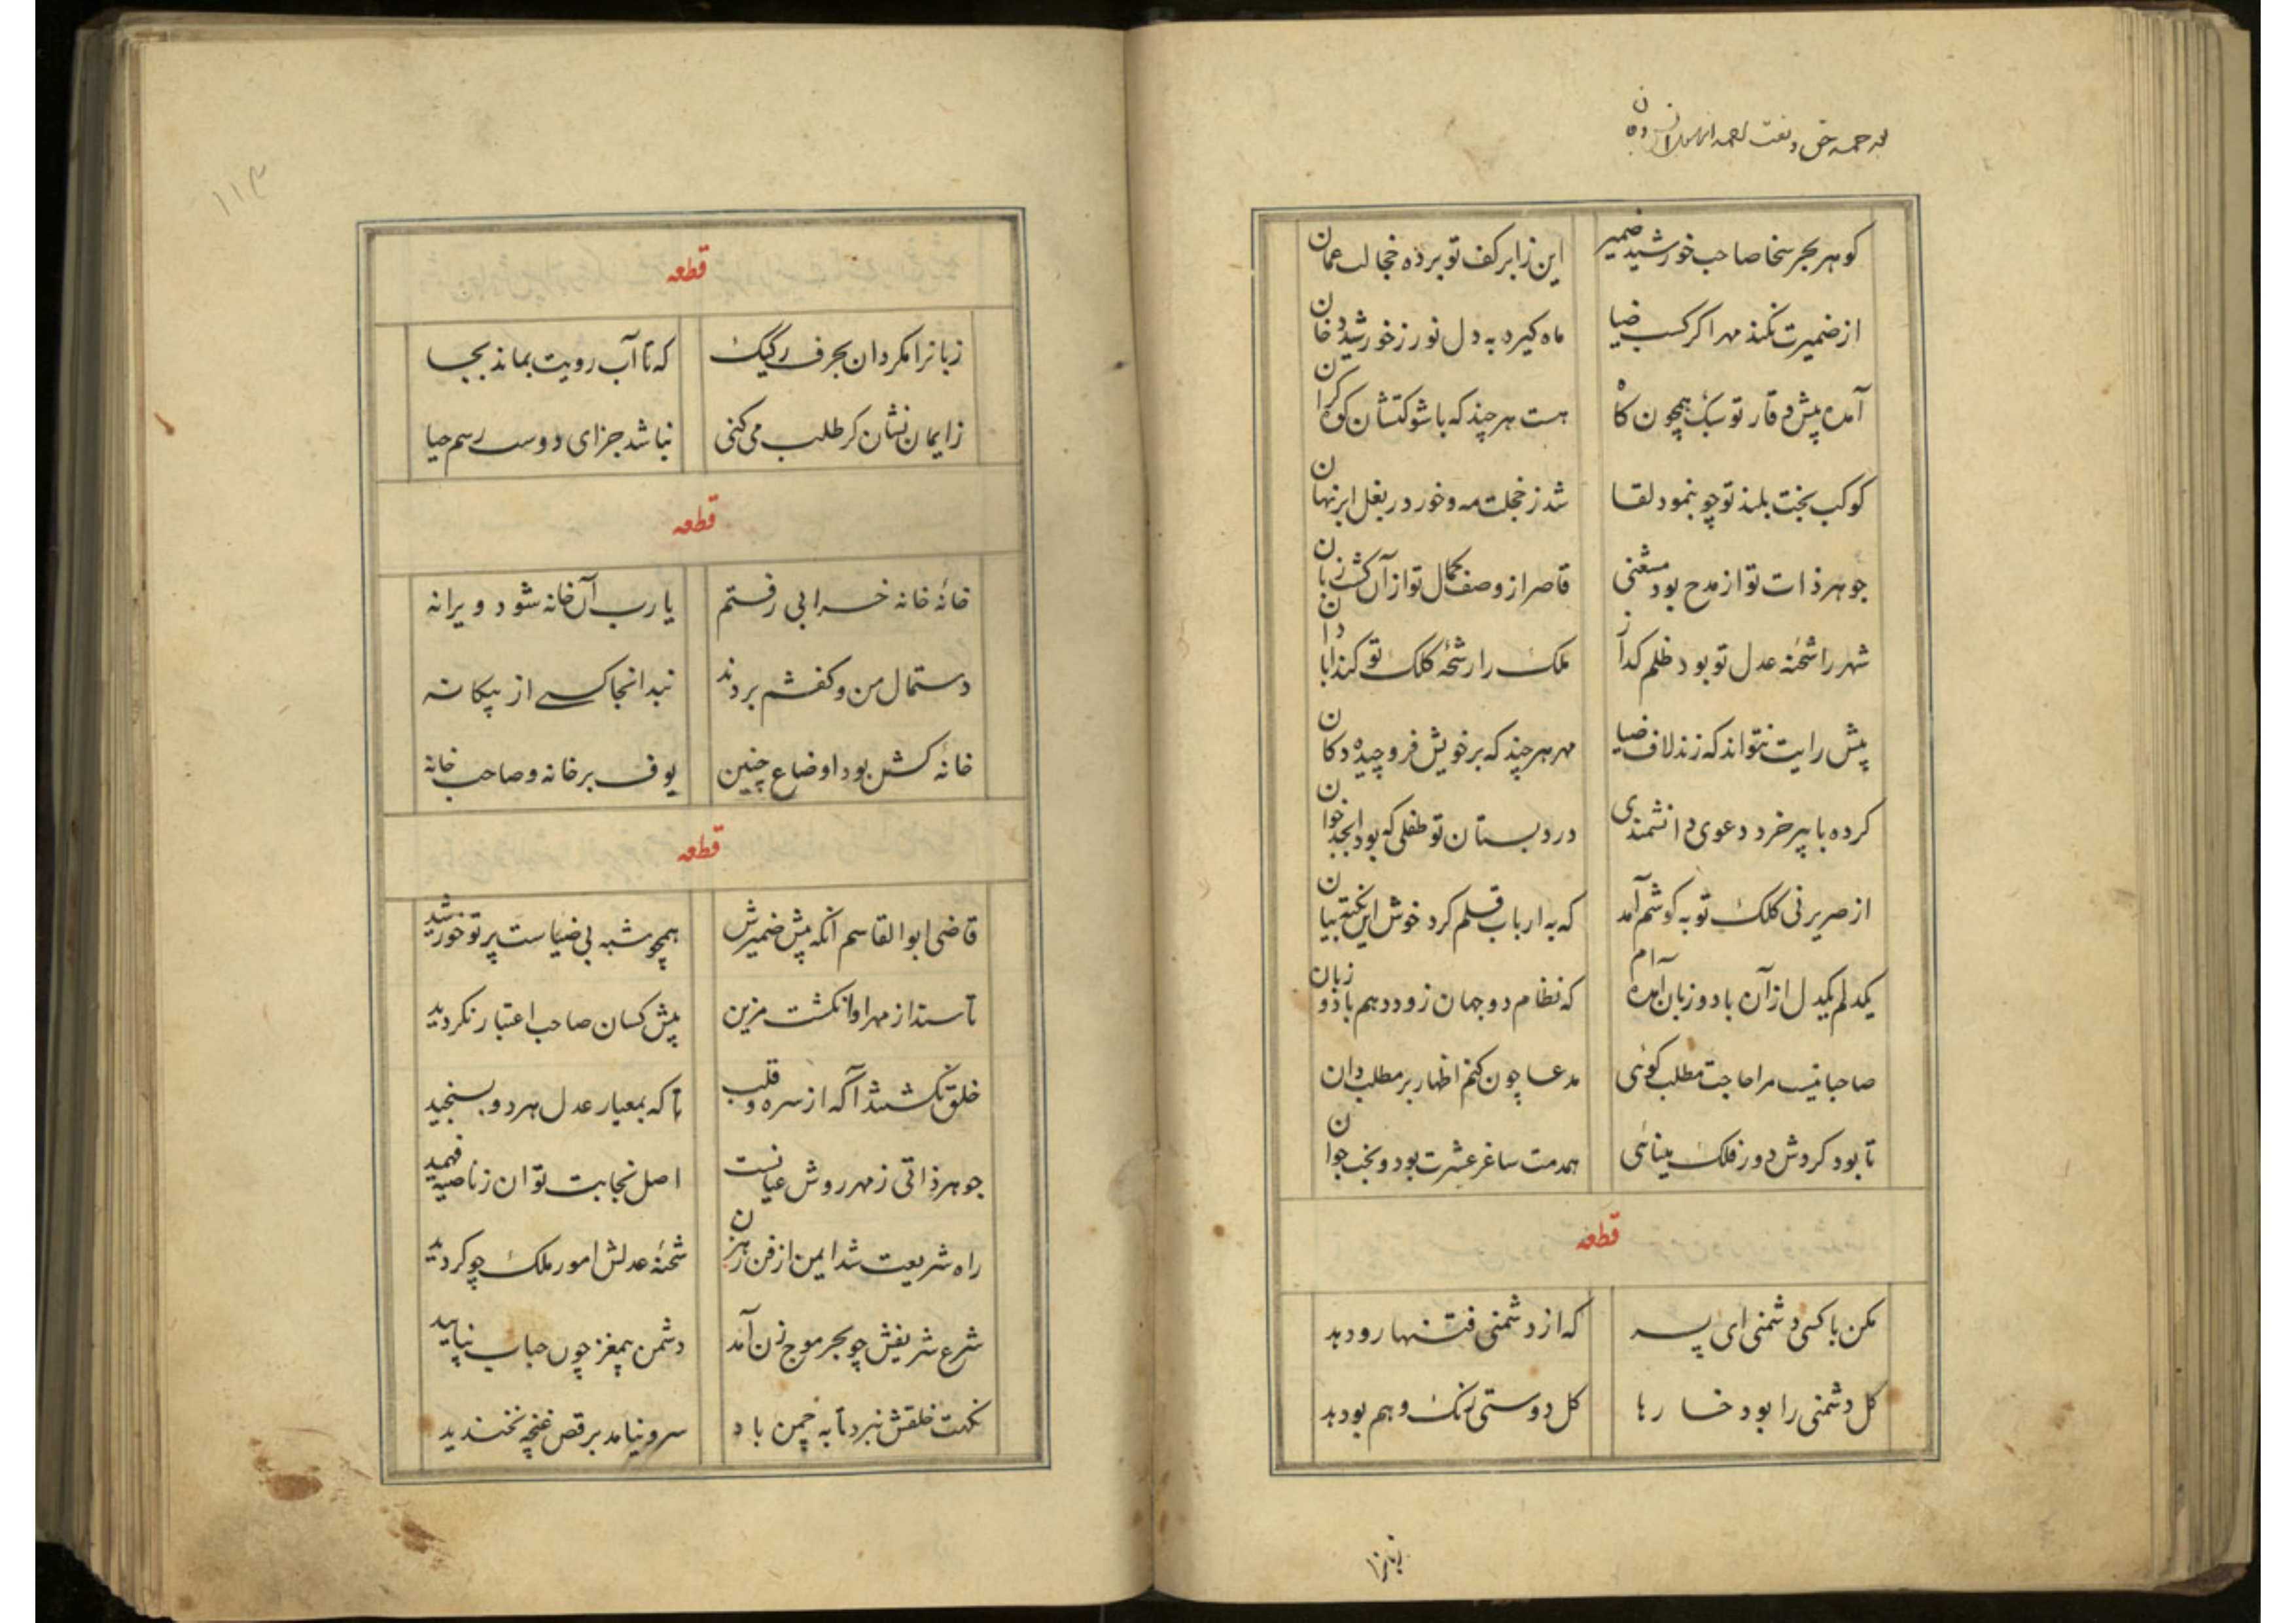 گوهر بحر سخا صاحب خورشید ضمیر این زابر کف تو برده خجالت عمان
از ضمیرت نکند مهر اگر کسب ضیا ماه گیرد به دل نور ز خورشید دخان
آمده پیش وقار تو سبک همچون کاه هست هر چند که باشوکتشان کوه گران
کوکب بخت بلند تو چو بنمود لقا شد ز خجلت مه و خور در بغل ابر نهان
جوهر ذات تو از مدح بود مستغنی قاصر از وصف کمال تو از آن گشت زبان
شهر را شحنه عدل تو بود ظلم گداز ملک را رشحهٔ کلک تو کند ابادان
پیش رایت نتواند که زند لاف ضیا مهر هر چند که بر خویش فرو چیده دکان
کرده با پیر خرد دعوی دانشمندی در دبستان تو طفلی که بود ابجد خوان
از صریر نی کلک تو به گوشم آمد که به ارباب قلم کرد خوش این نکته بیان
یکدلم یکدل از آن با دو زبان آمده ام که نظام دو جهان زود دهم با دو زبان
صاحبا نیست مرا حاجت مطلب گوئی مدعا چون کنم اظهار بر مطلب دان
تا بود گردش دور فلک مینائی همدمت ساغر عشرت بود و بخت جوان
قطعه
مکن با کسی دشمنی ای پسر که از دشمنی فتنها رو دهد
گل دشمنی را بود خارها گل دوستی رنگ و هم بو دهد
زبانرا
۱۱۳
قطعه
زبانرا مگردان بحرف رکیک که تا آب رویت بماند بجا
ز ایمان نشان گر طلب می کنی نباشد جز ای دوست رسم حیا
قطعه
خانهٔ خانه خرابی رفتم یا رب آن خانه شود ویرانه
دستمال من و کفشم بردند نبد انجا کسے از بیکانه
خانهٔ کش بود اوضاع چنین یوف بر خانه و صاحب خانه
قطعه
قاضی ابوالقاسم انکه پیش ضمیرش همچو شبه بی ضیاست پرتو خورشید
تا ستد از مهر او انکشت مزین پیش کسان صاحب اعتبار نکردید
خلق نکشتند آکه از سره و قلب تا که بمعیار عدل هر دو بسنجید
جوهر ذاتی ز مهر روش عیانست اصل نجابت توان ز ناصیه فهمید
راه شریعت شد ایمن از فن رهزن شحنهٔ عدلش امور ملک چو کردید
شرع شریفش چو بحر موج زن آمد دشمن بیمغز چون حباب نپایید
نکهت خلقش نبرد تا به چمن باد سرو نیامد برقص غنچه نخندید